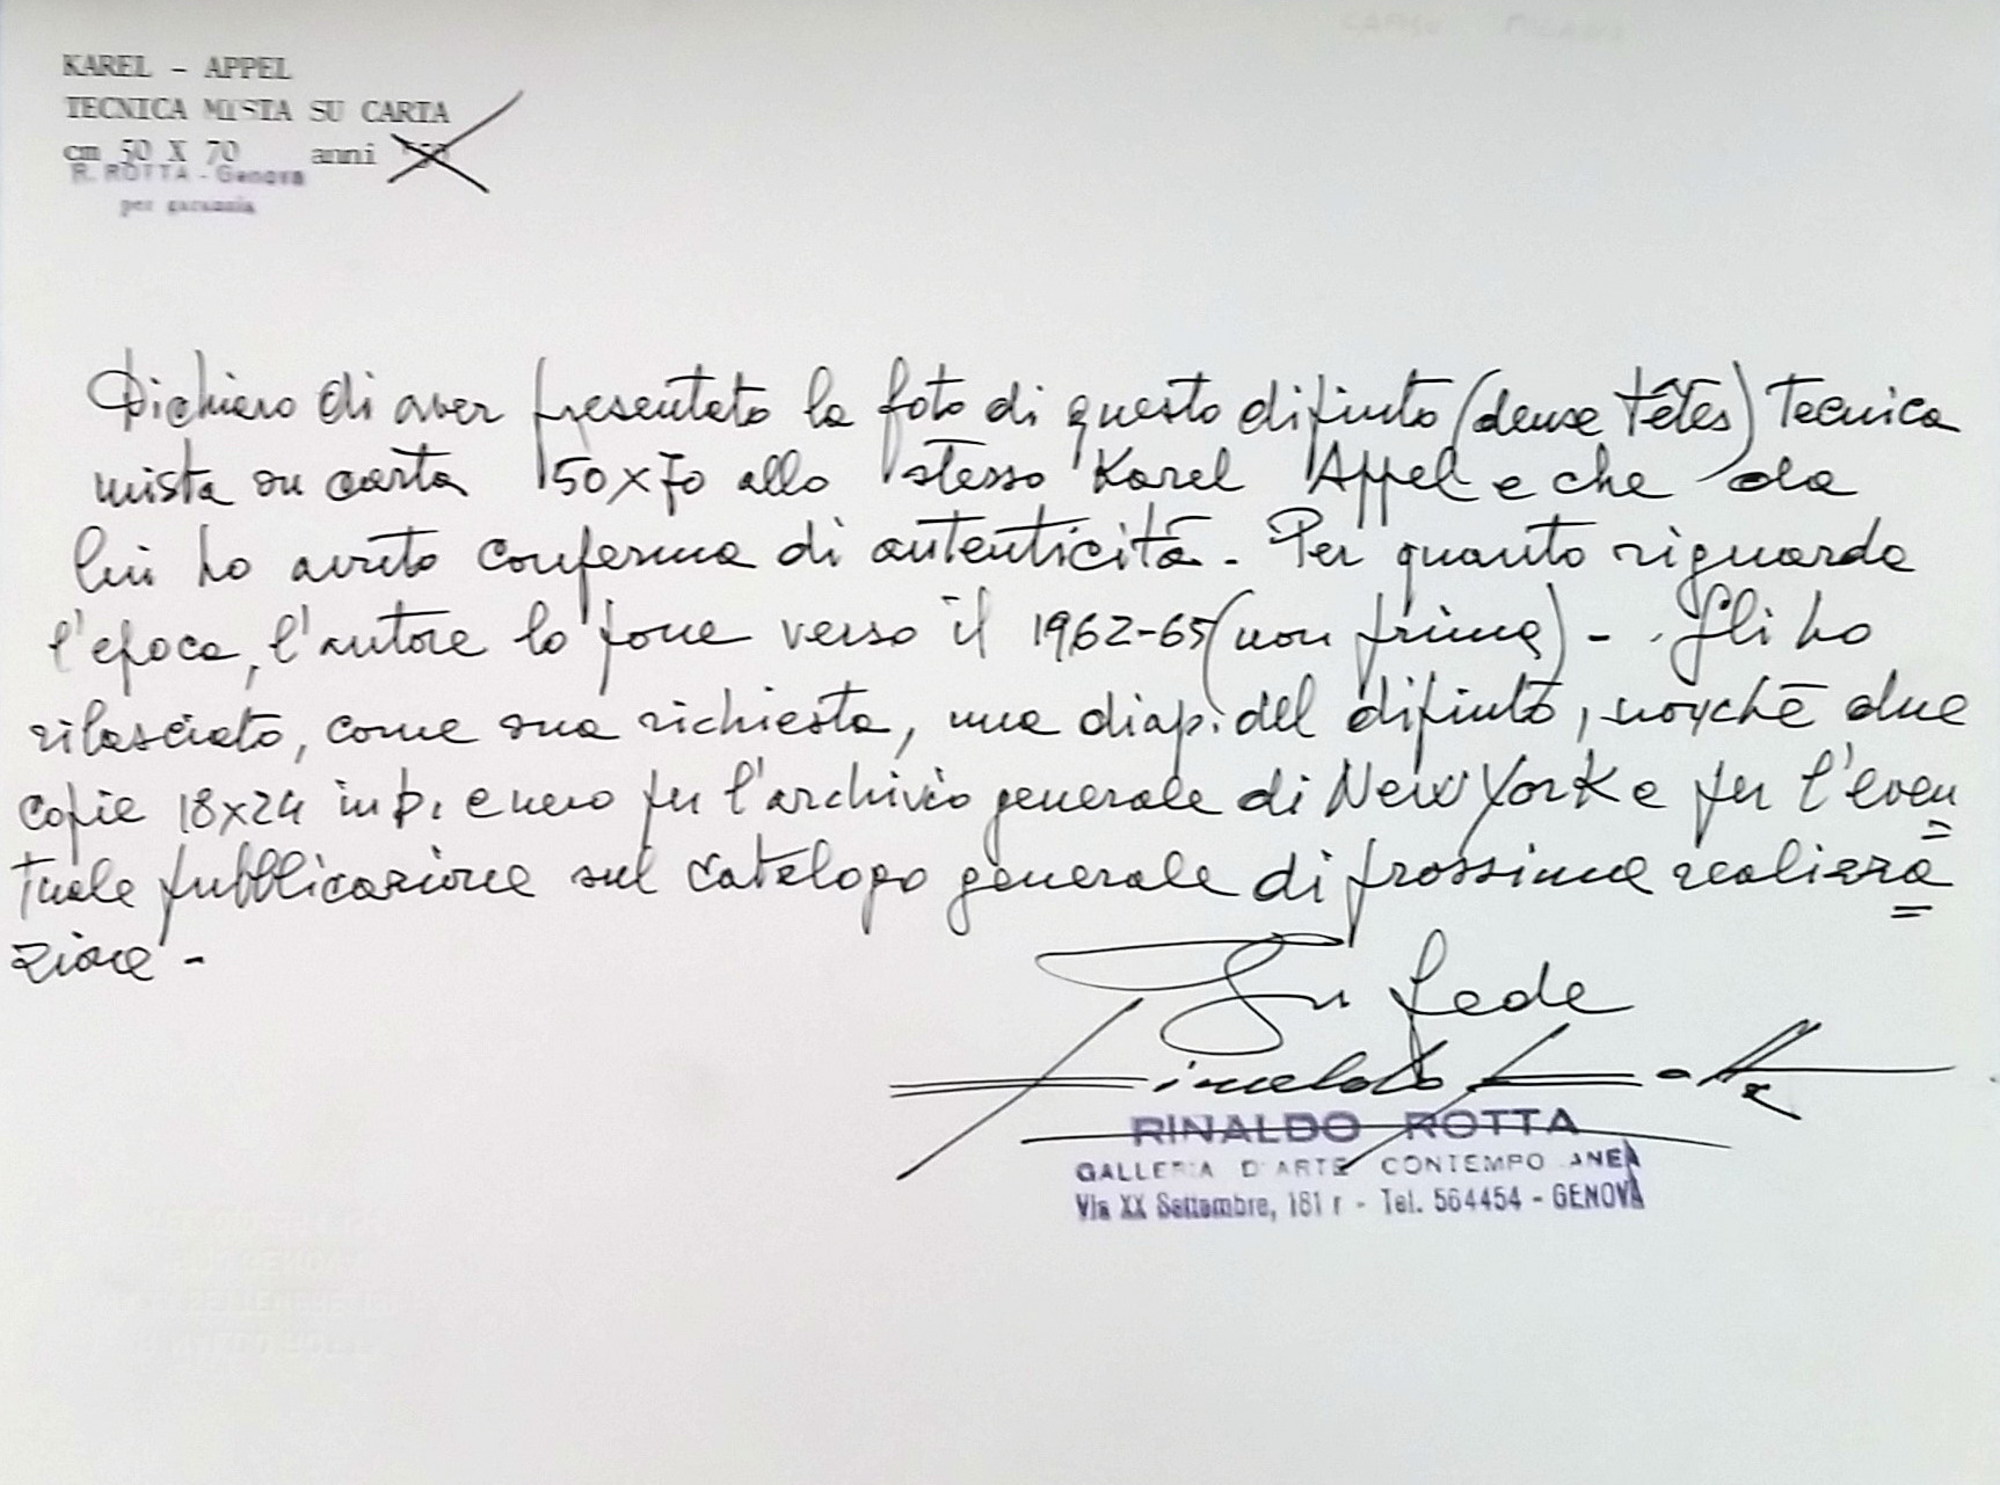 KAREL - APPEL
TECNICA MISTA SU CARTA
cm 50 X 70 anni '50
R. ROTTA - Genova
per garanzia
Dichiaro di aver presentato la foto di questo dipinto (deux têtes) Tecnica
mista su carta 50x70 allo stesso Karel Appel e che da
lui ho avuto conferma di autenticità - Per quanto riguarda
l'epoca, l'autore lo pone verso il 1962-65 (non prima) - Gli ho
rilasciato, come sua richiesta, una diap. del dipinto, nonchè due
copie 18x24 in b. e nero per l'archivio generale di New York e per l'even
tuale pubblicazione sul catalogo generale di prossima realizza
zione -
In fede
Rinaldo Rotta
RINALDO ROTTA
GALLERIA D'ARTE CONTEMPORANEA
Via XX Settembre, 181 r - Tel. 564454 - GENOVA